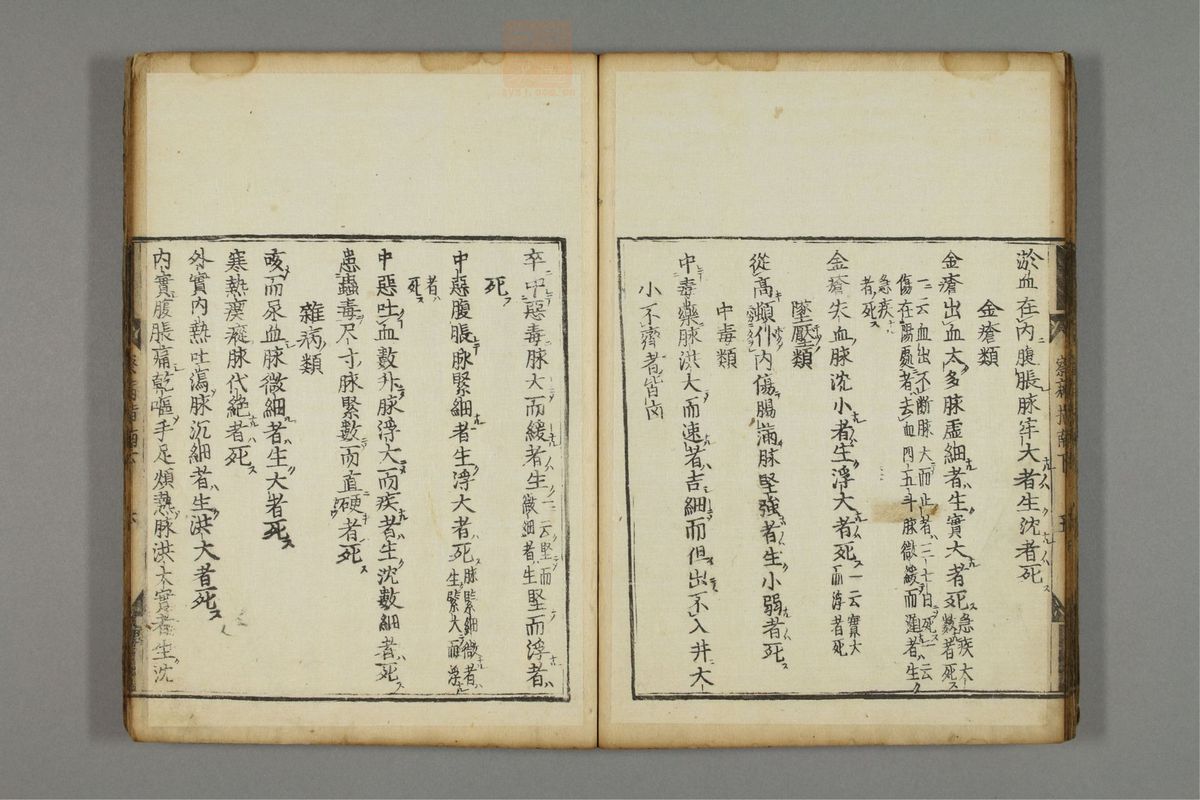 淤血在内腹脹脉牢大者生沈者死
金瘡類
金瘡出血太多脉虚細者生實大者死急疾大數者死
一云血出不斷脉大而止者三七日死一云
傷在陽處者去血四五斗脉微緩而遲者生
急疾者死
金瘡失血脉沈小者生浮大者死一云實大而浮者死
墜壓類
從高頿仆内傷腸滿脉堅強者生小弱者死
中毒類
中毒藥脉洪大而速者吉細而但出不入并大
小不齊者皆凶
卒中惡毒脉大而緩者生一云堅而微細者生堅而浮者
死
中惡腹脹脉緊細者生浮大者死脉緊細微者生緊大而浮
者死
中惡吐血數升脉浮大而疾者生沈數細者死
患蟲毒尺寸脉緊數而直硬者死
雜病類
咳而尿血脉微細者生大者死
寒熱瘈瘲脉代絶者死
外實内熱吐瀉脉沉細者生洪大者死
内實腹脹痛乾嘔手足煩熱脉洪大實者生沈